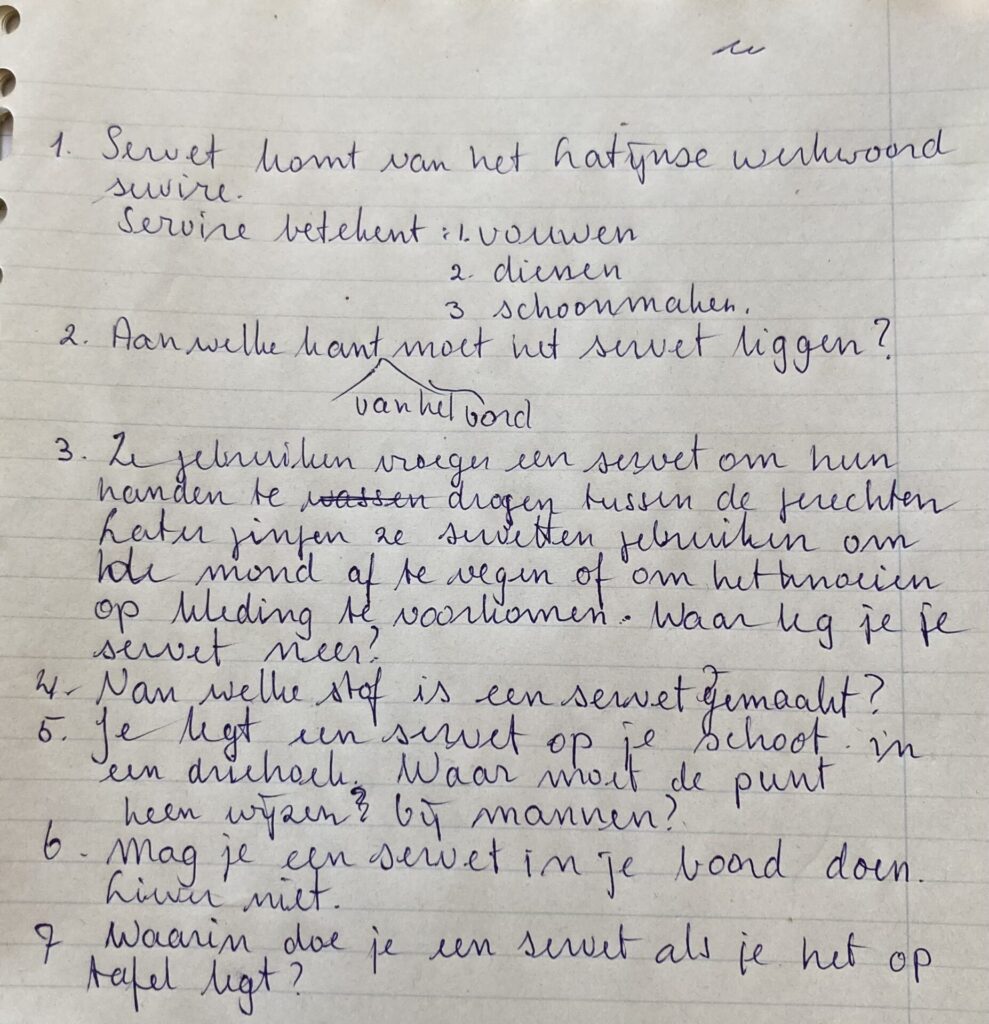 1. Servet komt van het Latijnse werkwoord
servire.
Servire betekent : 1. vouwen
2. dienen
3 schoonmaken.
2. Aan welke kant moet het servet liggen?
van het bord
3. Ze gebruiken vroeger een servet om hun
handen te wassen drogen tussen de gerechten
Later gingen ze servetten gebruiken om
de mond af te vegen of om het knoeien
op kleding te voorkomen. Waar leg je je
servet neer?
4. Van welke stof is een servet gemaakt?
5. Je legt een servet op je schoot in
een driehoek. Waar moet de punt
heen wijzen? bij mannen?
6. Mag je een servet in je boord doen.
Liever niet.
7 Waarin doe je een servet als je het op
tafel legt?